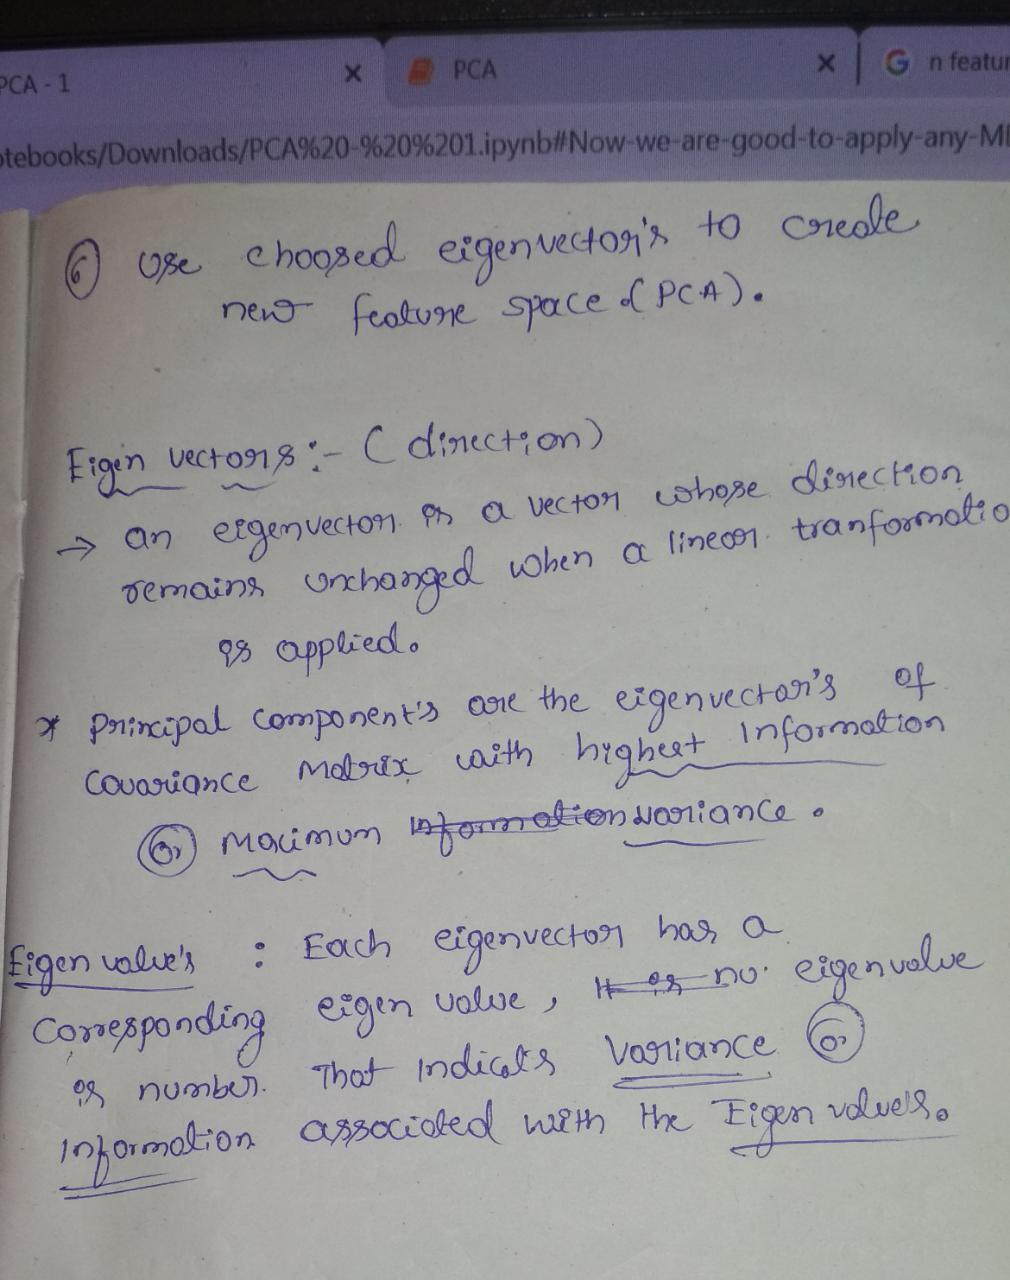 PCA - 1 × PCA × n featur
otebooks/Downloads/PCA%20-%20%201.ipynb#Now-we-are-good-to-apply-any-ML
6 Use choosed eigenvector's to create
new feature space (PCA).
Eigen vectors :- (direction)
→ an eigenvector is a vector whose direction
remains unchanged when a linear tranformatio
is applied.
* principal component's are the eigenvector's of
covariance matrix with highest information
or maximum information variance.
Eigen value's : Each eigenvector has a
corresponding eigen value, It is no. eigenvalue
is number. That indicats variance or
information associated with the Eigen values.